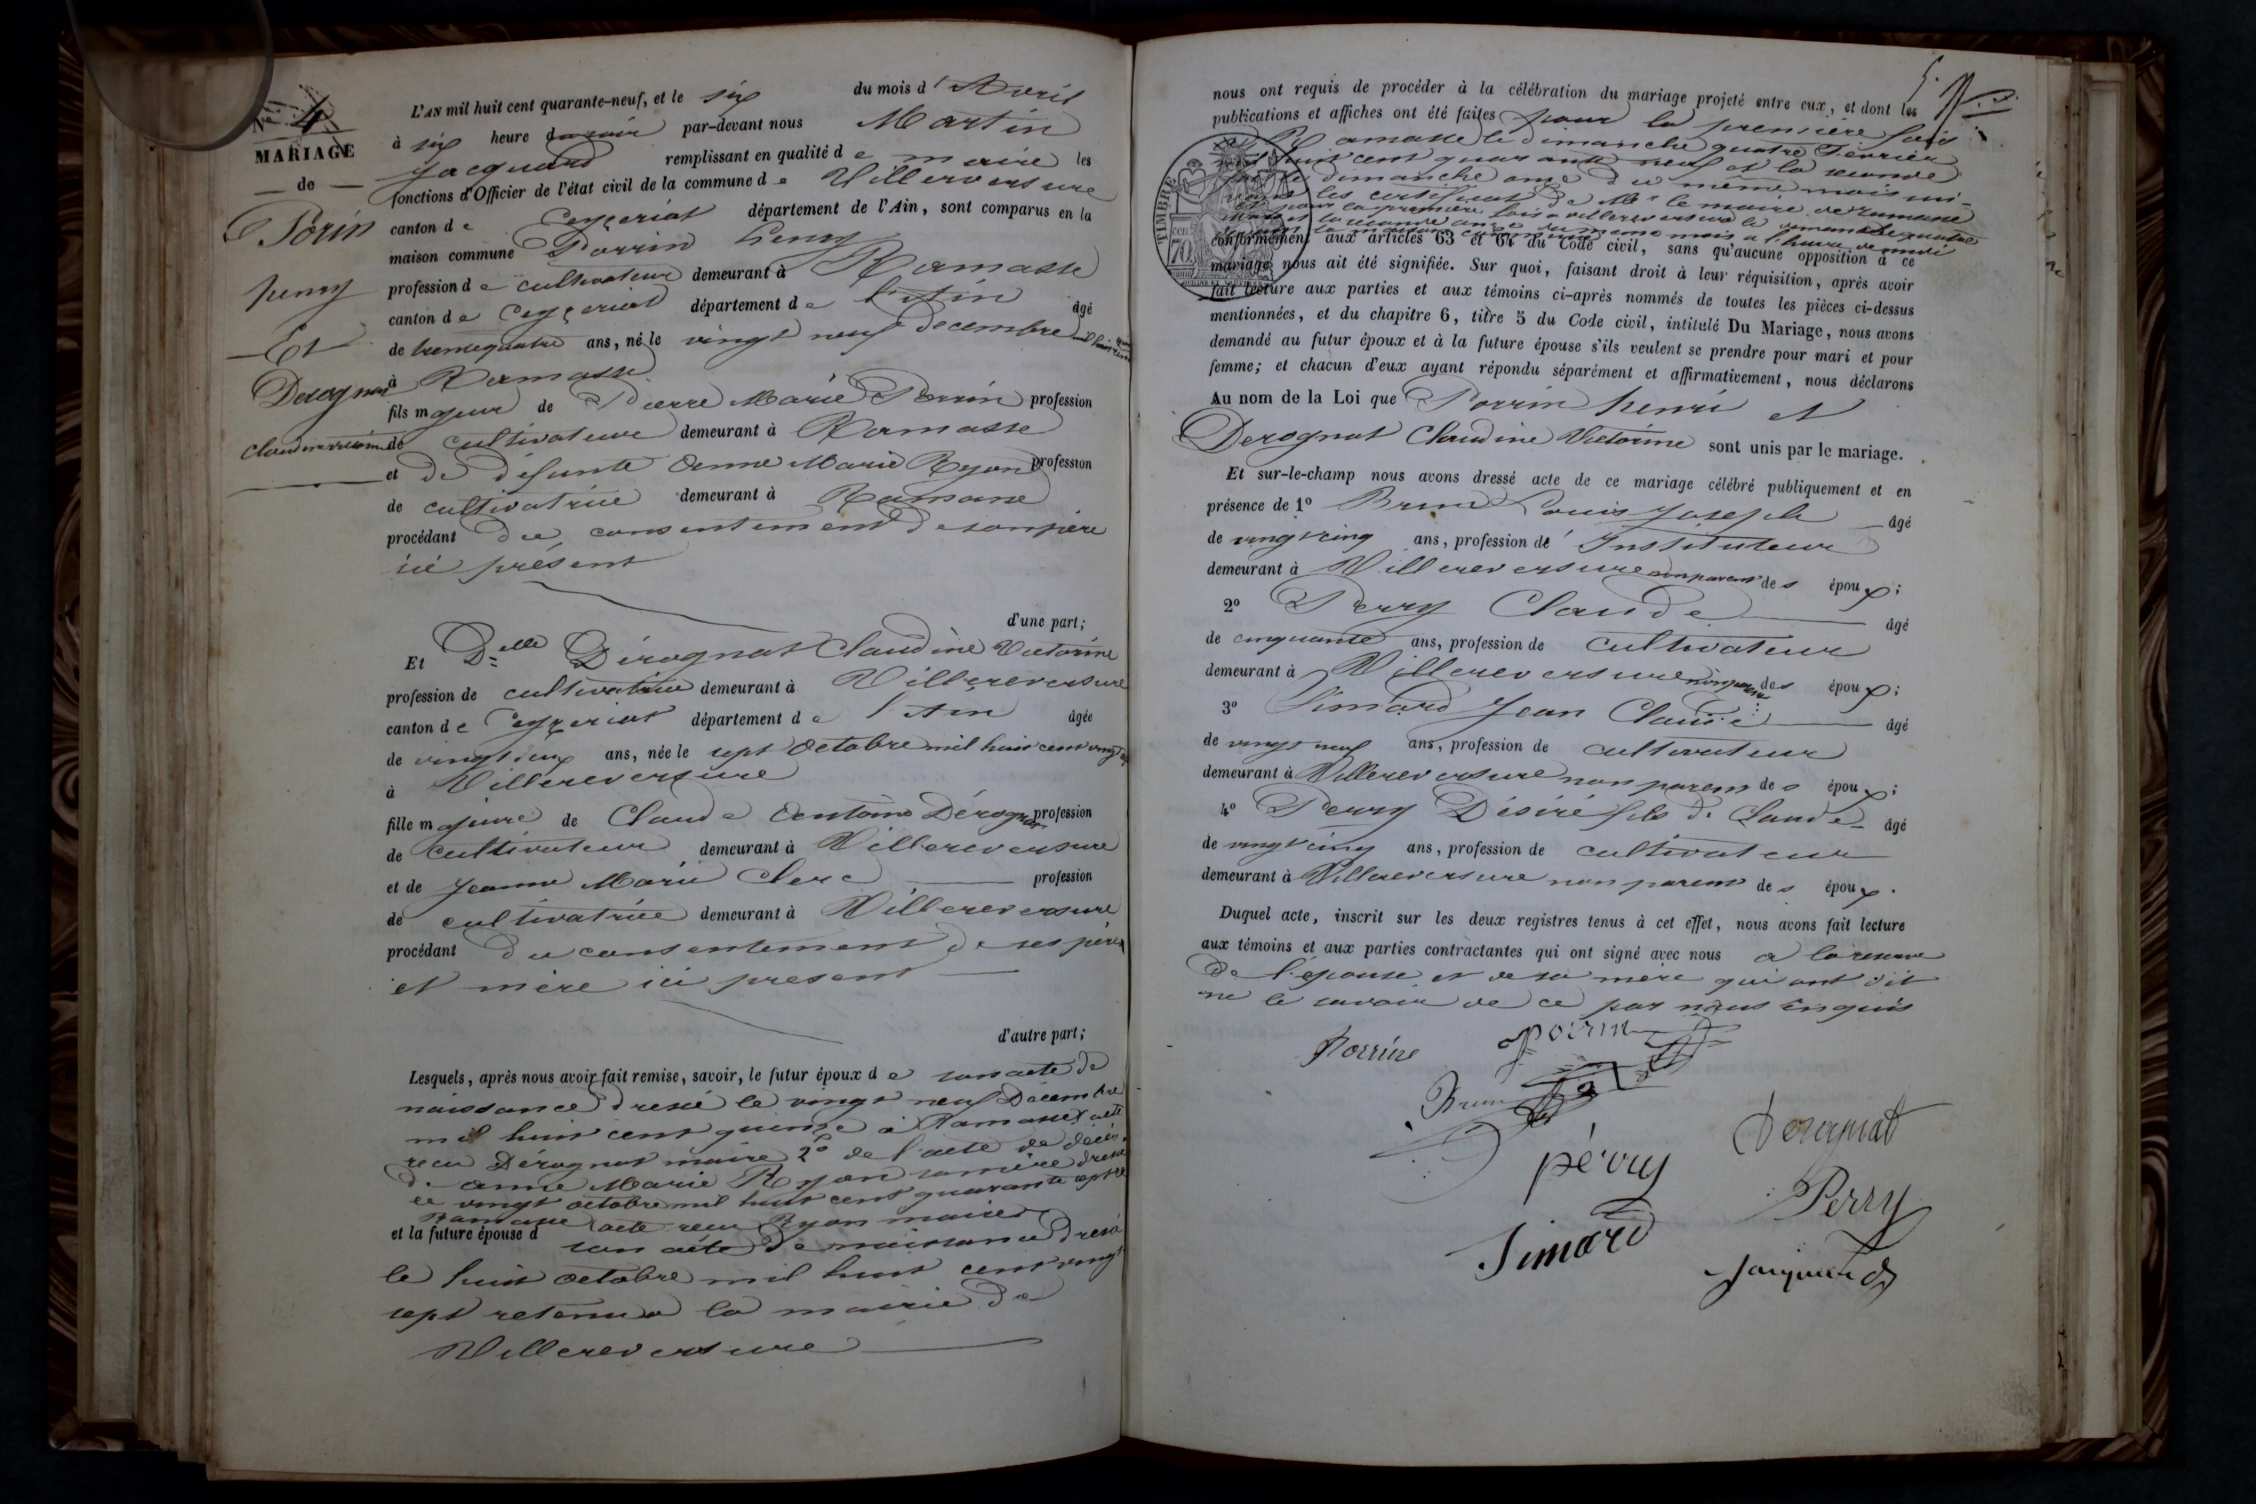 4
MARIAGE
de
Porin
henry
Et
Derognat
Claudine victorine
L'AN mil huit cent quarante-neuf, et le six du mois d'Avril
à six heure du soir par-devant nous Martin
Jacquand remplissant en qualité de maire les
fonctions d'Officier de l'état civil de la commune de Villereversure
canton de Ceyzeriat département de l'Ain, sont comparus en la
maison commune Porrin henry
profession de cultivateur demeurant à Ramasse
canton de Ceyzeriat département de l'Ain âgé
de trentequatre ans, né le vingt neuf decembre
à Ramasse
fils majeur de Pierre Marie Porrin profession
de cultivateur demeurant à Ramasse
et de défunte Anne Marie Ryon profession
de cultivatrice demeurant à Ramasse
procédant du consentement de son père
ici présent
d'une part;
Et Delle Dérognat Claudine Victorine
profession de cultivatrice demeurant à Villereversure
canton de Ceyzeriat département de l'Ain âgée
de vingt deux ans, née le sept Octobre mil huit cent vingt
à Villereversure
fille majeure de Claude Antoine Dérognat profession
de cultivateur demeurant à Villereversure
et de Jeanne Marie Clerc profession
de cultivatrice demeurant à Villereversure
procédant du consentement de ses père
et mère ici present
d'autre part;
Lesquels, après nous avoir fait remise, savoir, le futur époux de son acte de
naissance dressé le vingt neuf Décembre
mil huit cent quinze à Ramasse acte
recu Dérognat maire 2° de l'acte de décès
de anne Marie Ryon sa mère dressé
le vingt octobre mil huit cent quarante sept à
Ramasse acte recu Ryon maire
et la future épouse d son acte de naissance dressé
le huit octobre mil huit cent vingt
sept retenu a la mairie de
Villereversure
5.
nous ont requis de procéder à la célébration du mariage projeté entre eux, et dont les
publications et affiches ont été faites pour la première fois
à Ramasse le dimanche quatre Fevrier
mil huit cent quarante neuf et la seconde
le dimanche onze du même mois
les certificat de Mr le maire de ramasse
et pour la première fois a villereversure le dimanche quatre
et la seconde onze du meme mois a l'heure de midi
TIMBRE
70
conformément aux articles 63 et 64 du Code civil, sans qu'aucune opposition à ce
mariage nous ait été signifiée. Sur quoi, faisant droit à leur réquisition, après avoir
fait lecture aux parties et aux témoins ci-après nommés de toutes les pièces ci-dessus
mentionnées, et du chapitre 6, titre 5 du Code civil, intitulé Du Mariage, nous avons
demandé au futur époux et à la future épouse s'ils veulent se prendre pour mari et pour
femme; et chacun d'eux ayant répondu séparément et affirmativement, nous déclarons
Au nom de la Loi que Porrin henri et
Derognat Claudine Victorine sont unis par le mariage.
Et sur-le-champ nous avons dressé acte de ce mariage célébré publiquement et en
présence de 1° Brun Louis Joseph âgé
de vingt cinq ans, profession d'Instituteur
demeurant à Villereversure non parent des époux;
2° Perry Claude âgé
de cinquante ans, profession de cultivateur
demeurant à Villereversure non parent des époux;
3° Simard Jean Claude âgé
de vingt neuf ans, profession de cultivateur
demeurant à Villereversure non parent des époux;
4° Perry Désiré fils de Claude âgé
de vingt cinq ans, profession de cultivateur
demeurant à Villereversure non parent des époux.
Duquel acte, inscrit sur les deux registres tenus à cet effet, nous avons fait lecture
aux témoins et aux parties contractantes qui ont signé avec nous a la reserve
de l'épouse et de sa mère qui ont dit
ne le savoir de ce par nous enquis
Porrin porrin
Brun
Derognat
pérry
Perry
Simard
Jacquand